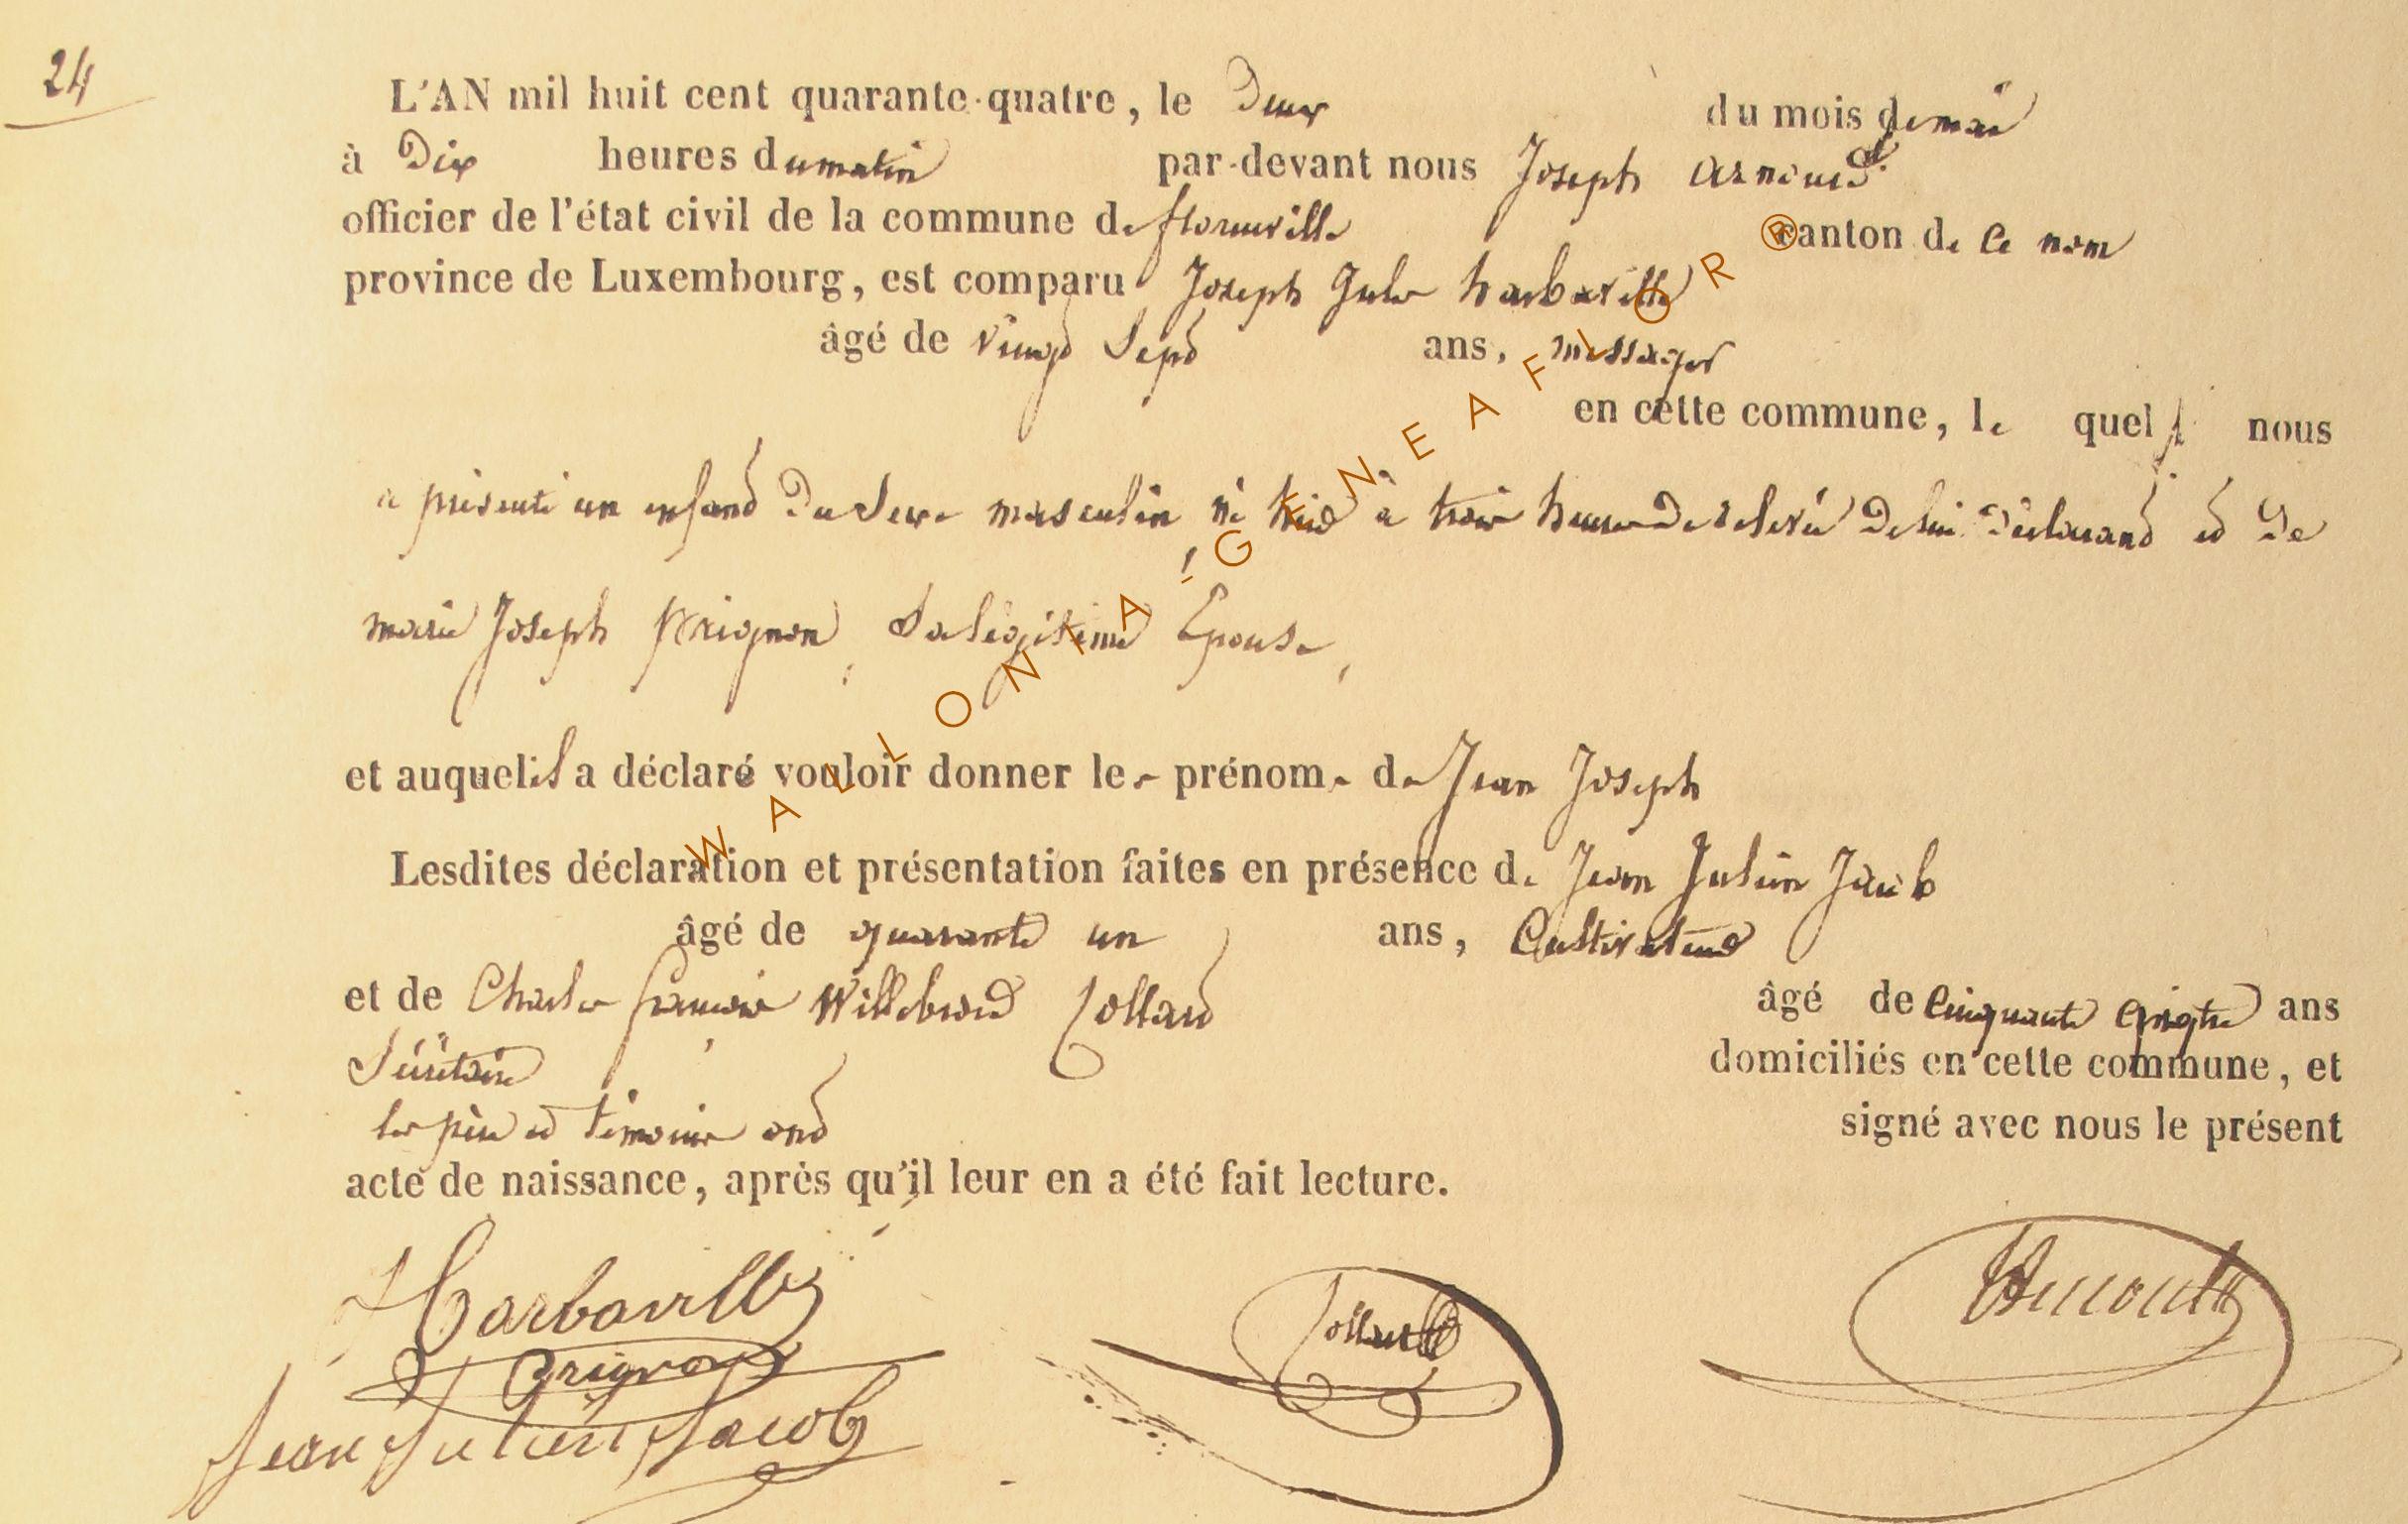 24
L'AN mil huit cent quarante-quatre, le Deux du mois de mai
à Dix heures du matin par-devant nous Joseph arnould
officier de l'état civil de la commune de florenville canton de ce nom
province de Luxembourg, est comparu Joseph Jules harbaville
âgé de vingt Sept ans, messager
en cette commune, le quel nous
a présenté un enfant Du Sexe masculin né hier à trois heures De relevée De lui Déclarant et De
marie Joseph prignon, Sa légitime Epouse,
et auquel il a déclaré vouloir donner les prénoms de Jean Joseph
Lesdites déclaration et présentation faites en présence de Jean Julien Jacob
âgé de quarante un ans, Cultivateur
et de Charles francois Willebrord Collard âgé de Cinquante quatre ans
Secrétaire domiciliés en cette commune, et
les père et témoins ont signé avec nous le présent
acte de naissance, après qu'il leur en a été fait lecture.
Harbaville
Prignon
Collard
Arnould
Jean Julien Jacob
WALLONIA-GENEAFLOR®